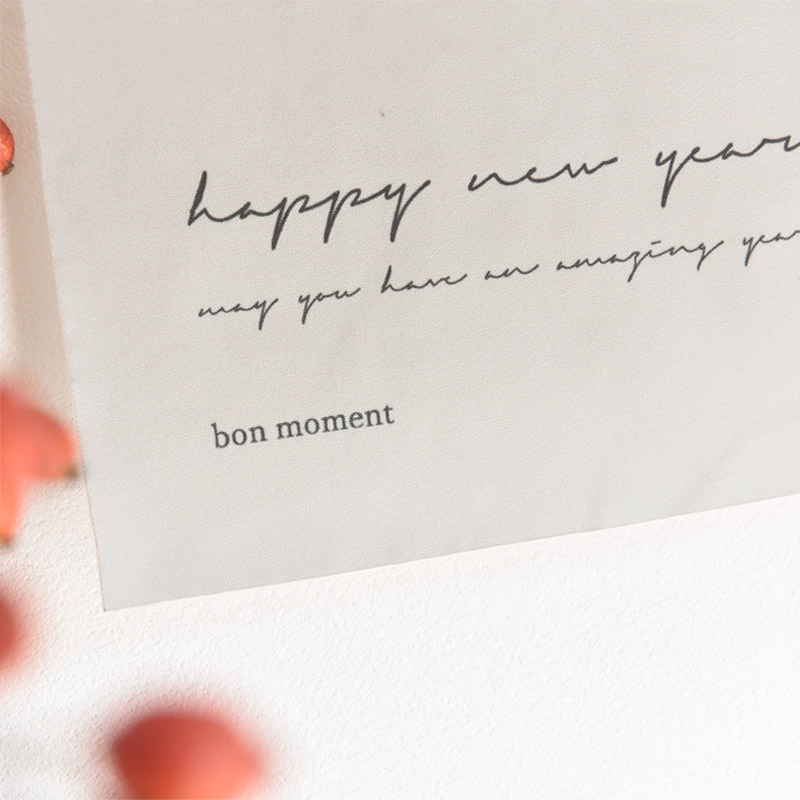 happy new year
may you have an amazing year
bon moment